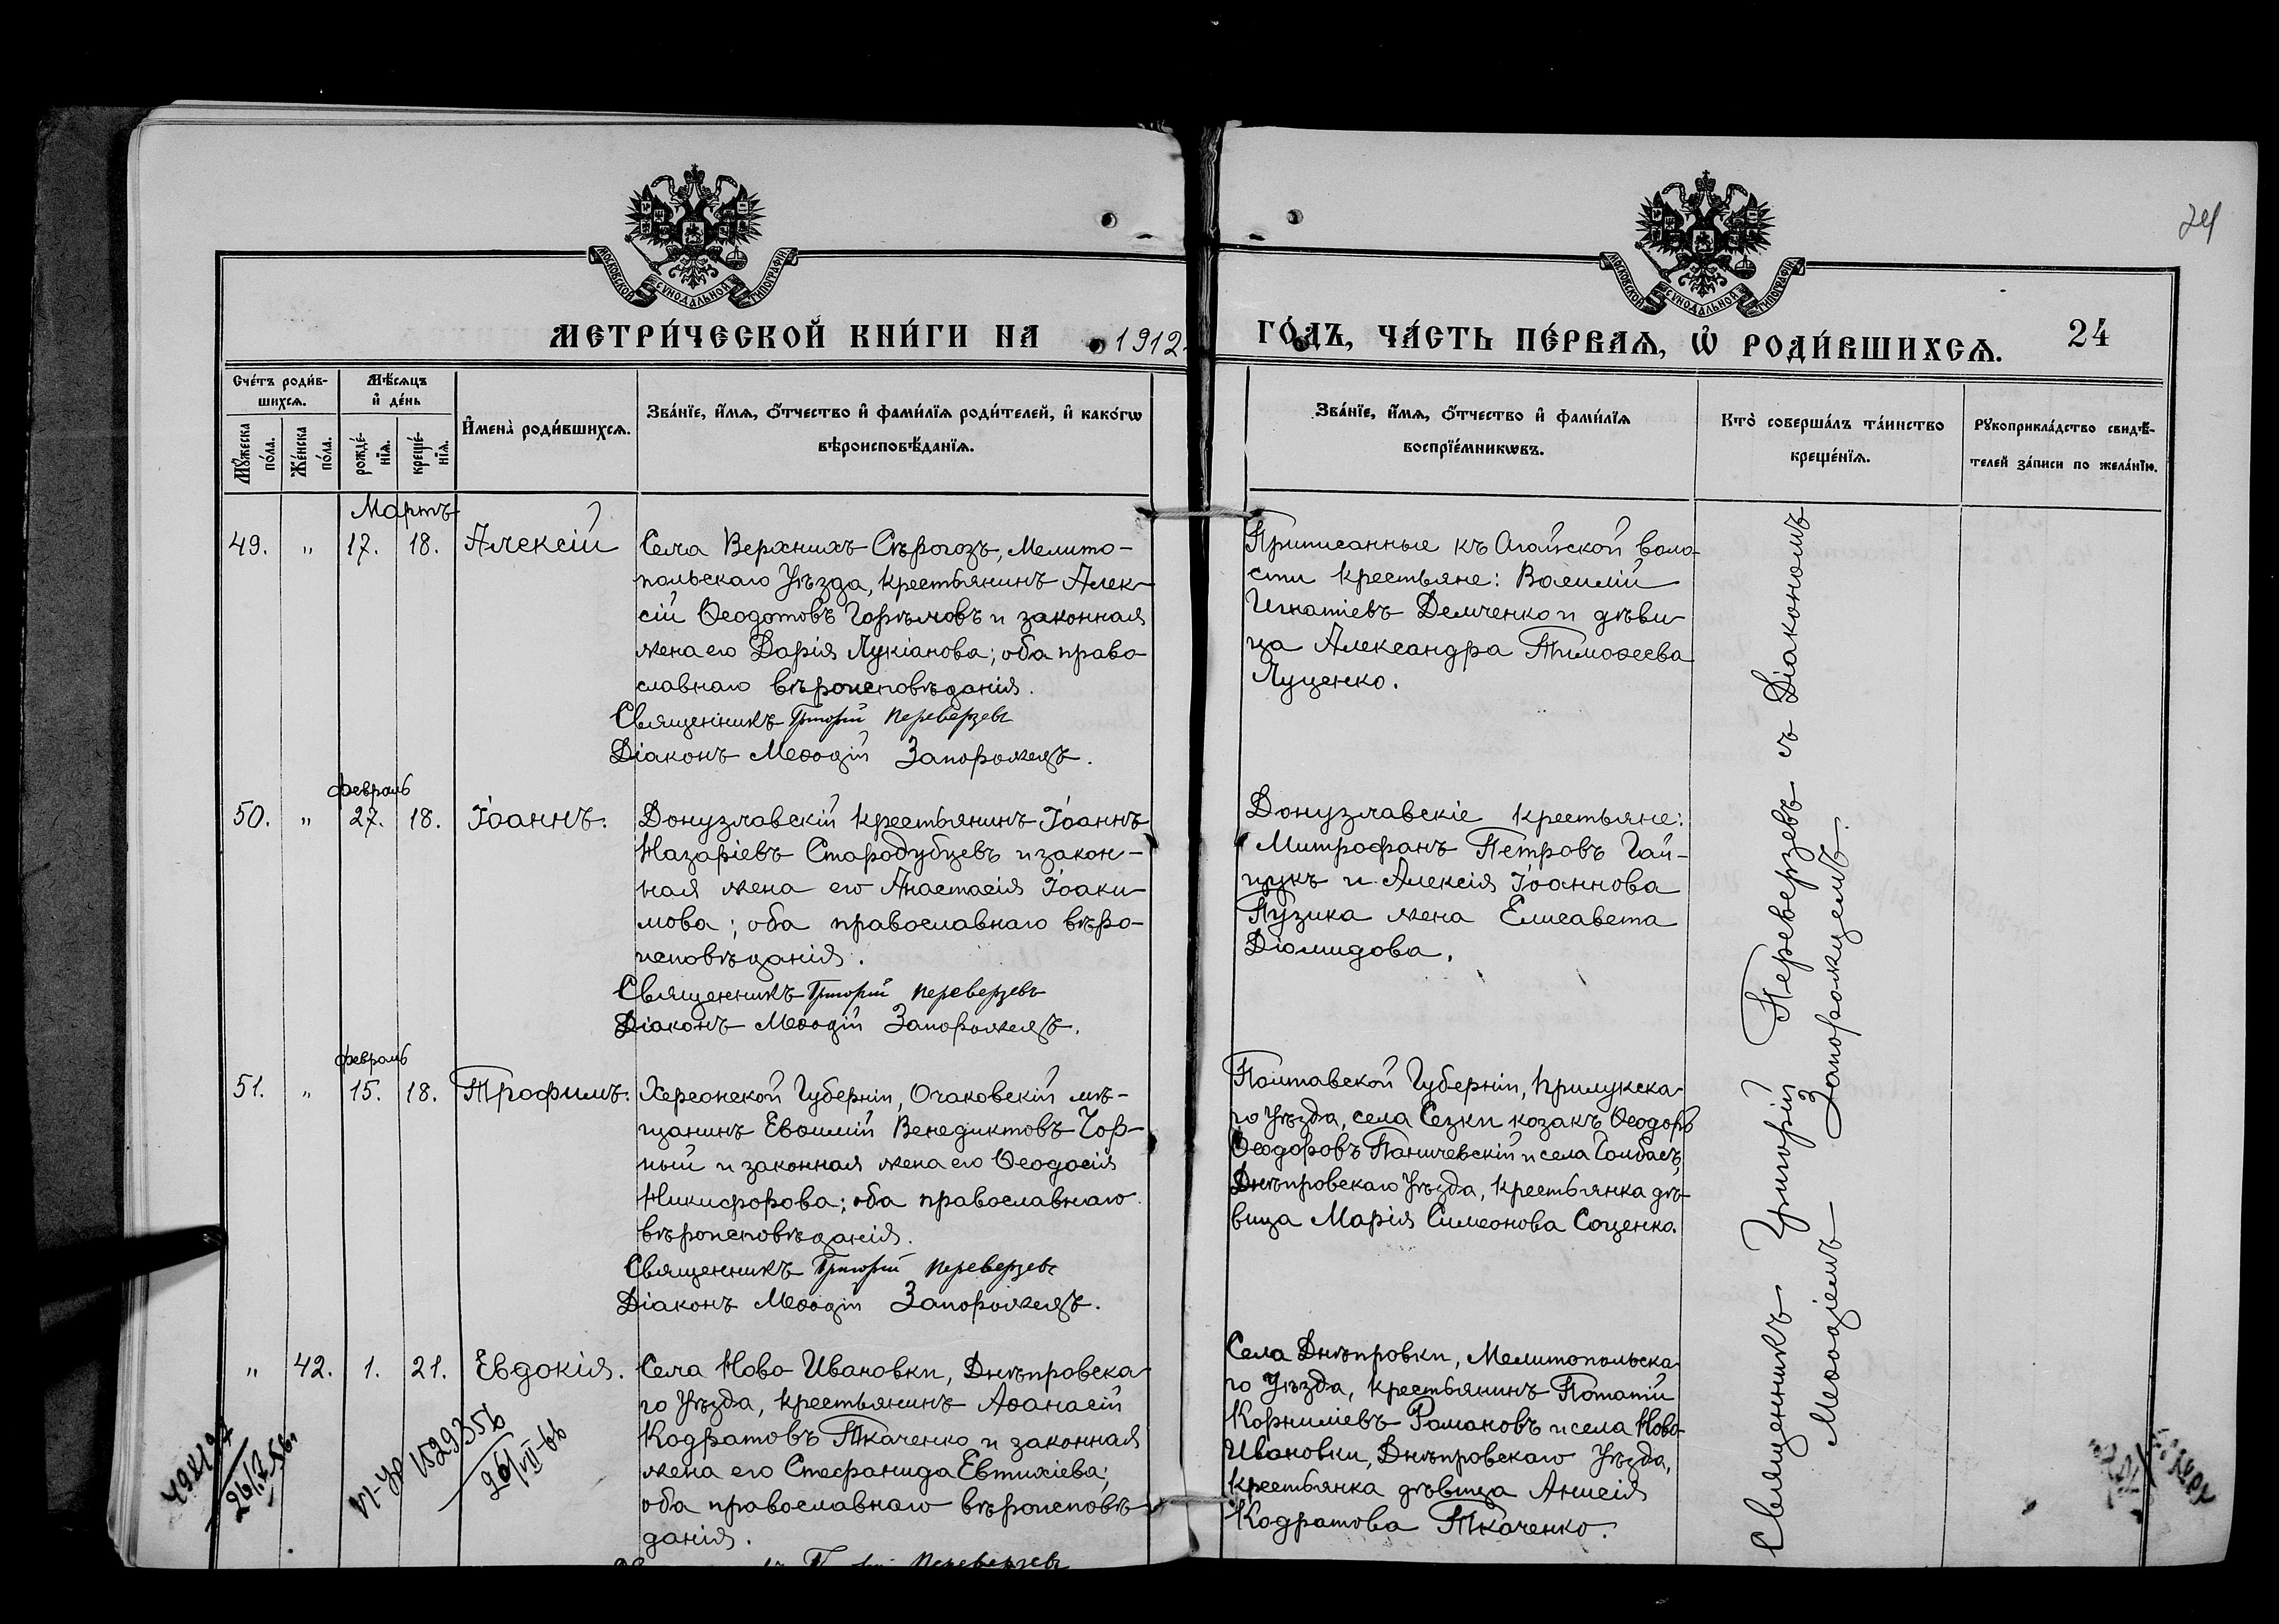 24
МОСКОВСКОЙ СѴНОДАЛЬНОЙ ТИПОГРАФІИ
МОСКОВСКОЙ СѴНОДАЛЬНОЙ ТИПОГРАФІИ
МЕТРИ́ЧЕСКОЙ КНИ́ГИ НА 1912
ГО́ДЪ, ЧА́СТЬ ПЕ́РВАѦ, Ѡ҆ РОДИ́ВШИХСѦ. 24
Сче́тъ роди́в-
шихсѧ.
Мꙋ́жеска
по́ла.
Же́нска
по́ла.
Мѣ́сѧцъ
и҆ де́нь
рожде́-
нїѧ.
креще́-
нїѧ.
И҆мена̀ роди́вшихсѧ.
Зва́нїе, и҆́мѧ, ѻ҆́тчество и҆ фами́лїѧ роди́телей, и҆ како́гѡ
вѣроисповѣ́данїѧ.
Зва́нїе, и҆́мѧ, ѻ҆́тчество и҆ фами́лїѧ
воспрїе́мникѡвъ.
Кто̀ соверша́лъ та́инство
креще́нїѧ.
Рꙋкоприкла́дство свидѣ́-
телей за́писи по жела́нїю.
Мартъ
49. " 17. 18. Алексій
Села Верхнихъ Сѣрогозъ, Мелито-
польскаго уѣзда, крестьянинъ Алек-
сій Ѳеодотовъ Горѣловъ и законная
жена его Дарія Лукіанова; оба право-
славнаго вѣроисповѣданія.
Священникъ Григорій Переверзевъ
Діаконъ Меѳодій Запорожецъ.
Приписанные къ Агайской воло-
сти крестьяне: Василій
Игнатіевъ Демченко и дѣви-
ца Александра Тимоѳеева
Луценко.
Февраль
50. " 27. 18. Іоаннъ.
Донузлавскій крестьянинъ Іоаннъ
Назаріевъ Стародубцевъ и закон-
ная жена его Анастасія Іоаки-
мова; оба православнаго вѣро-
исповѣданія.
Священникъ Григорій Переверзевъ
Діаконъ Меѳодій Запорожецъ.
Донузлавскіе крестьяне:
Митрофанъ Петровъ Гай-
цукъ и Алексія Іоаннова
Пузика жена Елисавета
Діомидова.
Февраль
51. " 15. 18. Трофимъ.
Херсонской Губерніи, Очаковскій мѣ-
щанинъ Евѳимій Венедиктовъ Чор-
ный и законная жена его Ѳеодосія
Никифорова; оба православнаго
вѣроисповѣданія.
Священникъ Григорій Переверзевъ
Діаконъ Меѳодій Запорожецъ.
Полтавской Губерніи, Прилукска-
го уѣзда, села Сезки козакъ Ѳеодоръ
Ѳеодоровъ Паничевскій и села
Днѣпровскаго уѣзда, крестьянка дѣ-
вица Марія Симеонова Соценко.
" 42. 1. 21. Евдокія.
Села Ново Ивановки, Днѣпровска-
го уѣзда, крестьянинъ Аѳанасій
Кодратовъ Ткаченко и законная
жена его Стефанида Евтихіева;
оба православнаго вѣроисповѣ-
данія.
Переверзевъ
Села Днѣпровки, Мелитопольска-
го уѣзда, крестьянинъ Потатій
Корниліевъ Романовъ и села Ново-
Ивановки, Днѣпровскаго уѣзда,
крестьянка дѣвица Анисія
Кодратова Ткаченко.
Священникъ Григорій Переверзевъ съ Діакономъ
Меѳодіемъ Запорожцемъ.